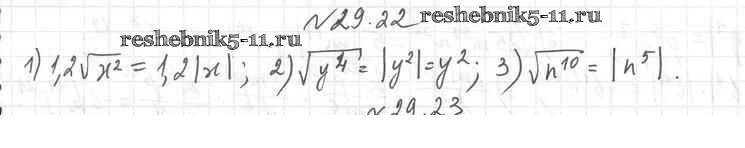 №29.22 reshebnik5-11.ru
reshebnik5-11.ru
1) 1,2√x² = 1,2|x|; 2) √y⁴ = |y²| = y²; 3) √n¹⁰ = |n⁵|.
№29.23